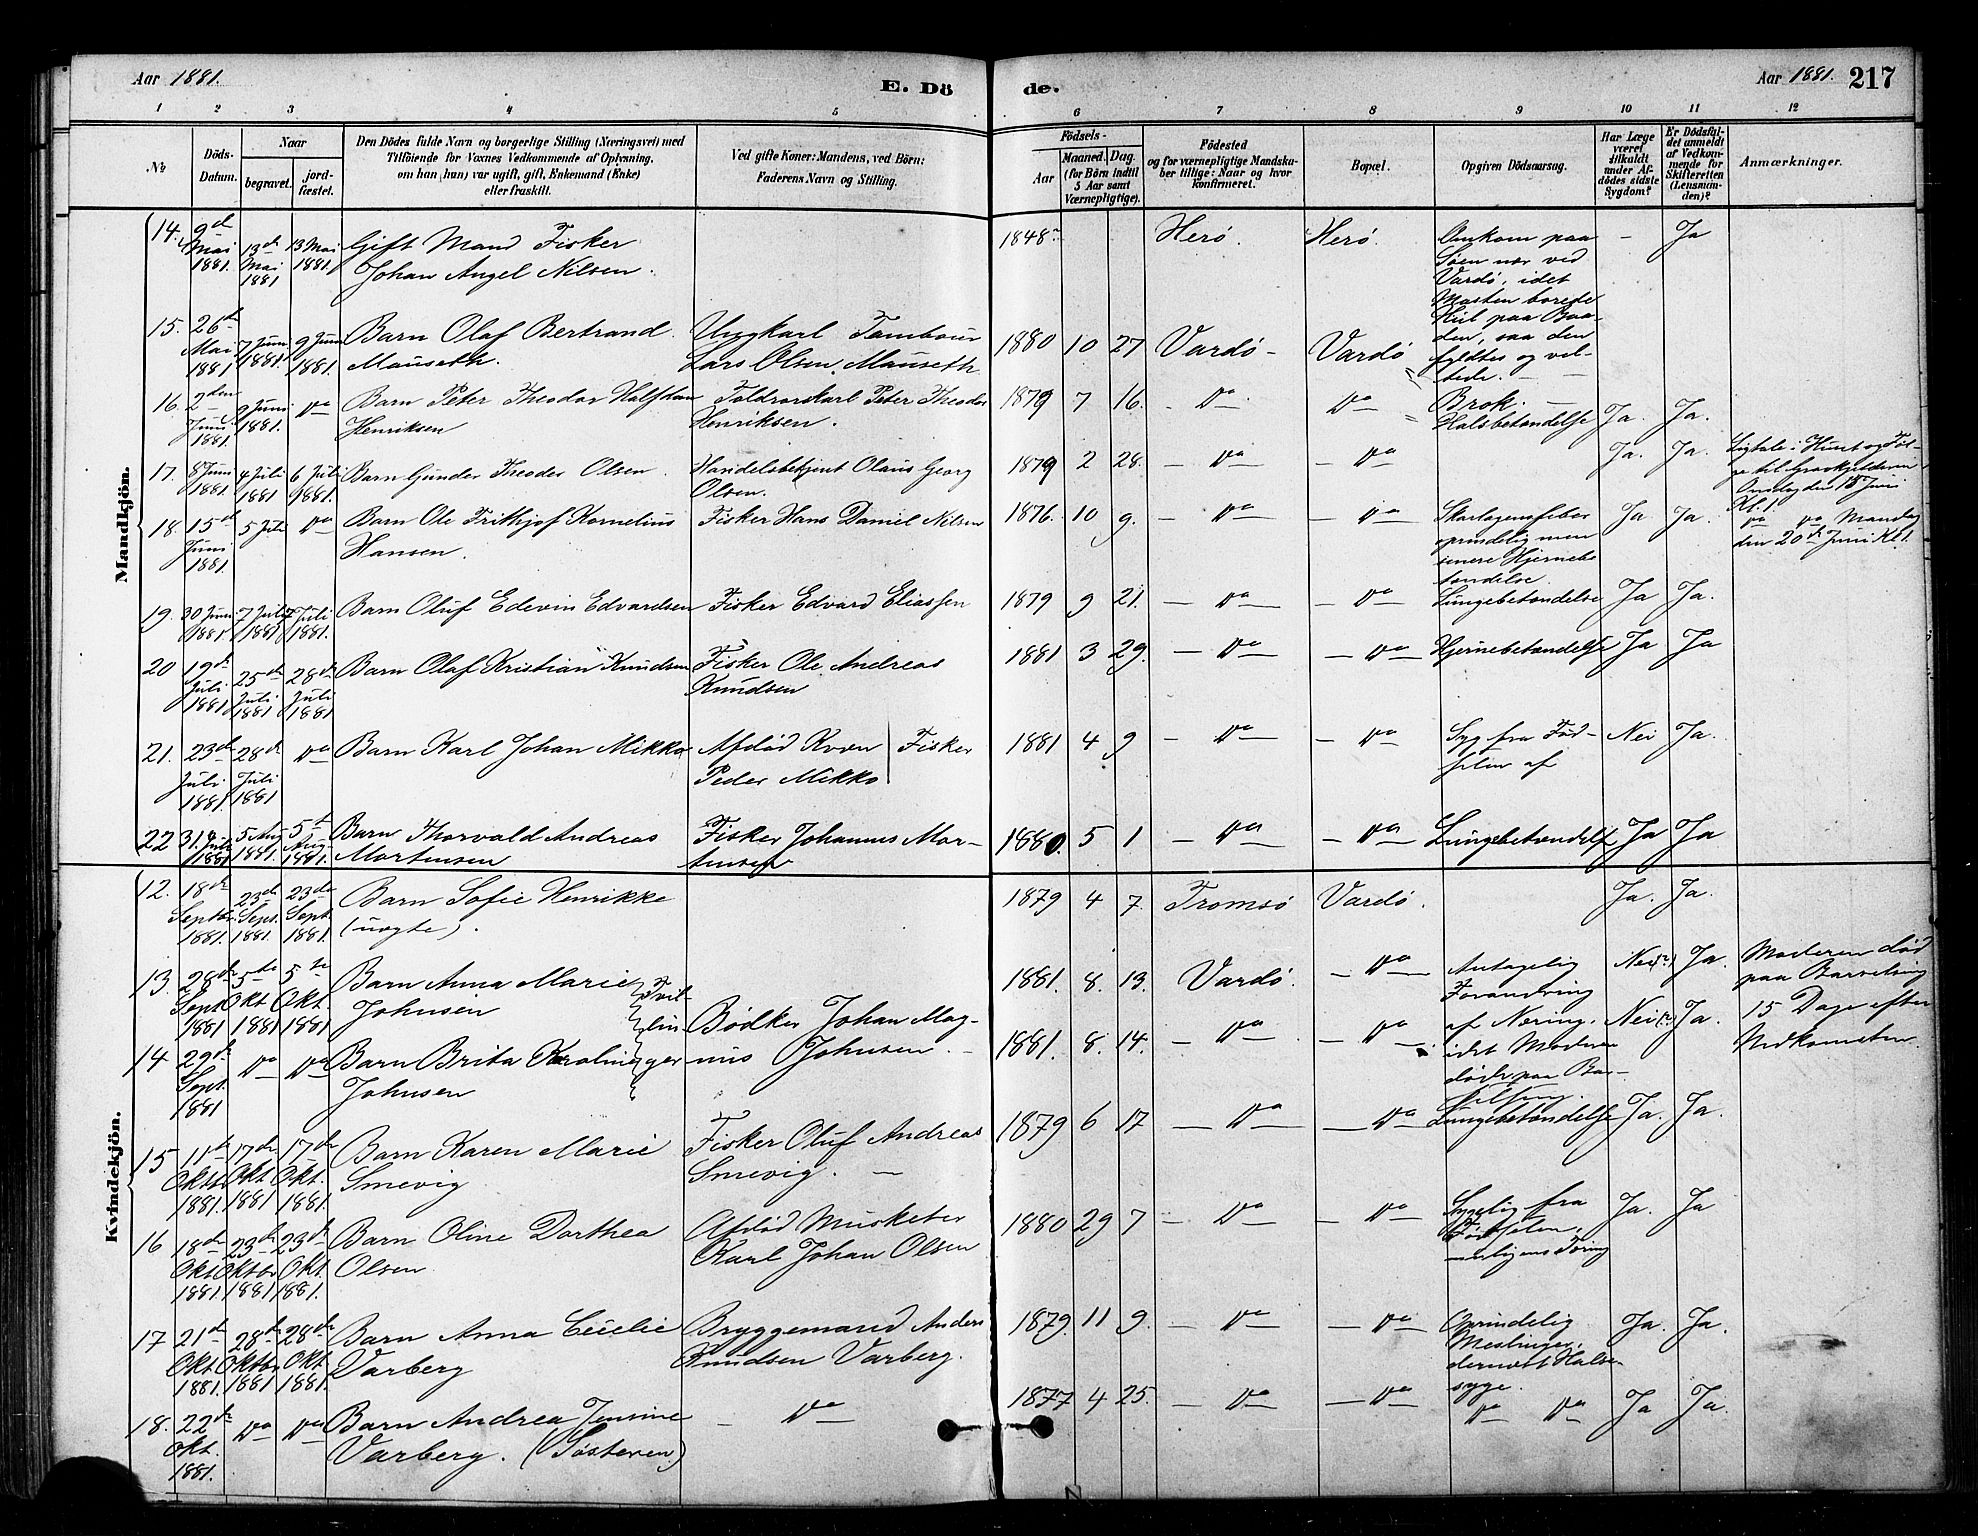 Aar 1881.
E. Dö
de.
Aar 1881. 217
1 2 3 4 5 6 7 8 9 10 11 12
No
Döds-Datum.
Naar
begravet.
jord-fæstet.
Den Dödes fulde Navn og borgerlige Stilling (Næringsvei) med
Tilföiende for Voxnes Vedkommende af Oplysning,
om han (hun) var ugift, gift, Enkemand (Enke)
eller fraskilt.
Ved gifte Koner: Mandens, ved Börn:
Faderens Navn og Stilling.
Födsels-
Aar
Maaned. Dag.
(for Börn indtil
5 Aar samt
Værnepligtige).
Födested
og for værnepligtige Mandska-
ber tillige: Naar og hvor
konfirmeret.
Bopæl.
Opgiven Dödsaarsag.
Har Læge
været
tilkaldt
under Af-
dödes sidste
Sygdom?
Er Dödsfal-
det anmeldt
af Vedkom-
mende for
Skifteretten
(Lensman-
den)?
Anmærkninger.
Mandkjön.
14. 9d Mai 1881. 13de Mai 1881 13 Mai 1881. Gift Mand Fisker
Johan Angel Nilsen. 1848 Herö. Herö. Omkom paa
Söen nær ved
Vardö, idet
Masten borede
Hul paa Baa-
den, saa den
fyldtes og vel-
tede. – Ja
15. 26de Mai 1881 7 Juni 1881. 9 Juni 1881. Barn Olaf Bertrand
Mauseth. Ungkarl Tambour
Lars Olsen Mauseth 1880 10 27 Vardö Vardö
Brok.
16. 2den Juni 1881. 9 Juni 1881. Do Barn Peter Theodor Halfdan
Henriksen Toldrorskarl Peter Theodor
Henriksen. 1879 7 16. Do Do Halsbetændelse Ja. Ja.
17. 8 Juni 1881. 4 Juli 1881 6 Juli 1881. Barn Gunder Theodor Olsen. Handelsbetjent Olaus Georg
Olsen. 1879 2 28. Do Do Ja. Ja. Ligtale i Huset og Föl-
ge til Gravkjelderen
Onsdag den 15 Juni
Kl. 1.
18. 15de Juni 1881. 5 Juli Do Barn Ole Frithjof Kornelius
Hansen. Fisker Hans Daniel Nilsen 1876. 10 9. Do Do Skarlagensfeber
oprindelig men
senere Hjernebe
tændelse Ja Ja. Do Do Mandag
den 20de Juni Kl. 1.
19. 30 Juni 1881. 7 Juli 1881 7 Juli 1881. Barn Oluf Edevin Edvardsen Fisker Edvard Eliassen 1879 9 21. Do Do Lungebetændelse Ja Ja.
20 19de Juli 1881. 25de Juli 1881 28de Juli 1881 Barn Olaf Kristian Knudsen Fisker Ole Andreas
Knudsen 1881 3 29. Do Do Hjernebetændelse Ja Ja
21. 23de Juli 1881. 28de Juli 1881 Do Barn Karl Johan Mikko Afdöd Kvæn Fisker
Peder Mikko 1881 4 9 Do Do Syg fra Föd-
selen af Nei Ja.
22 31. Juli 1881 5 Aug 1881. 5te Aug. 1881. Barn Thorvald Andreas
Mortensen Fisker Johannes Mor-
tensen 1880. 5 1 Do Do Lungebetændelse Ja Ja
Kvindekjön.
12. 18de Septbr. 1881. 23de Sept. 1881. 23de Sept. 1881. Barn Sofie Henrikke
(uægte). 1879 4 7. Tromsö Vardö. Ja. Ja.
13. 28de Sept 1881 5te Okt 1881 5te Okt. 1881 Barn Anna Marie
Johnsen Tvil-
lin
ger Bödker Johan Mag-
nus Johnsen. 1881. 8. 13. Vardö. Do Antagelig
Forandring
af Næring,
idet Moderen
döde paa Bar-
selseng. Nei Ja. Moderen död
paa Barselseng
15 Dage efter
Nedkomsten.
14 29de Sept. 1881 Do Do Barn Brita Karoline
Johnsen 1881. 8. 14. Do Do Nei Ja.
15 11te Oktbr 1881. 17de Okt 1881 17de Okt. 1881. Barn Karen Marie
Smevig Fisker Oluf Andreas
Smevig. 1879 6 17 Do Do Lungebetændelse Ja. Ja.
16 18de Okt 1881 23de Oktbr 1881 23de Okt. 1881. Barn Oline Dorthea
Olsen Afdöd Musketer
Karl Johan Olsen 1880 29 7 Do Do Sygelig fra
Födselen,
Tæring Ja. Ja
17 21de Okt. 1881. 28de Oktbr 1881 28de Okt. 1881. Barn Anna Cecilie
Varberg Bryggemand Anders
Knudsen Varberg. 1879. 11 9. Do Do Oprindelig
Meslinger,
dernæst Halse-
syge. Ja. Ja.
18. 22de Okt. 1881. Do Do Barn Andrea Jensine
Varberg. (Sösteren) Do 1877 4 25. Do Do Do Do Ja Ja.